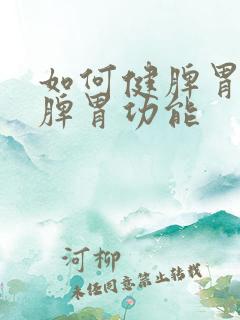 如何健脾胃
脾胃功能
河柳
未经同意禁止转载